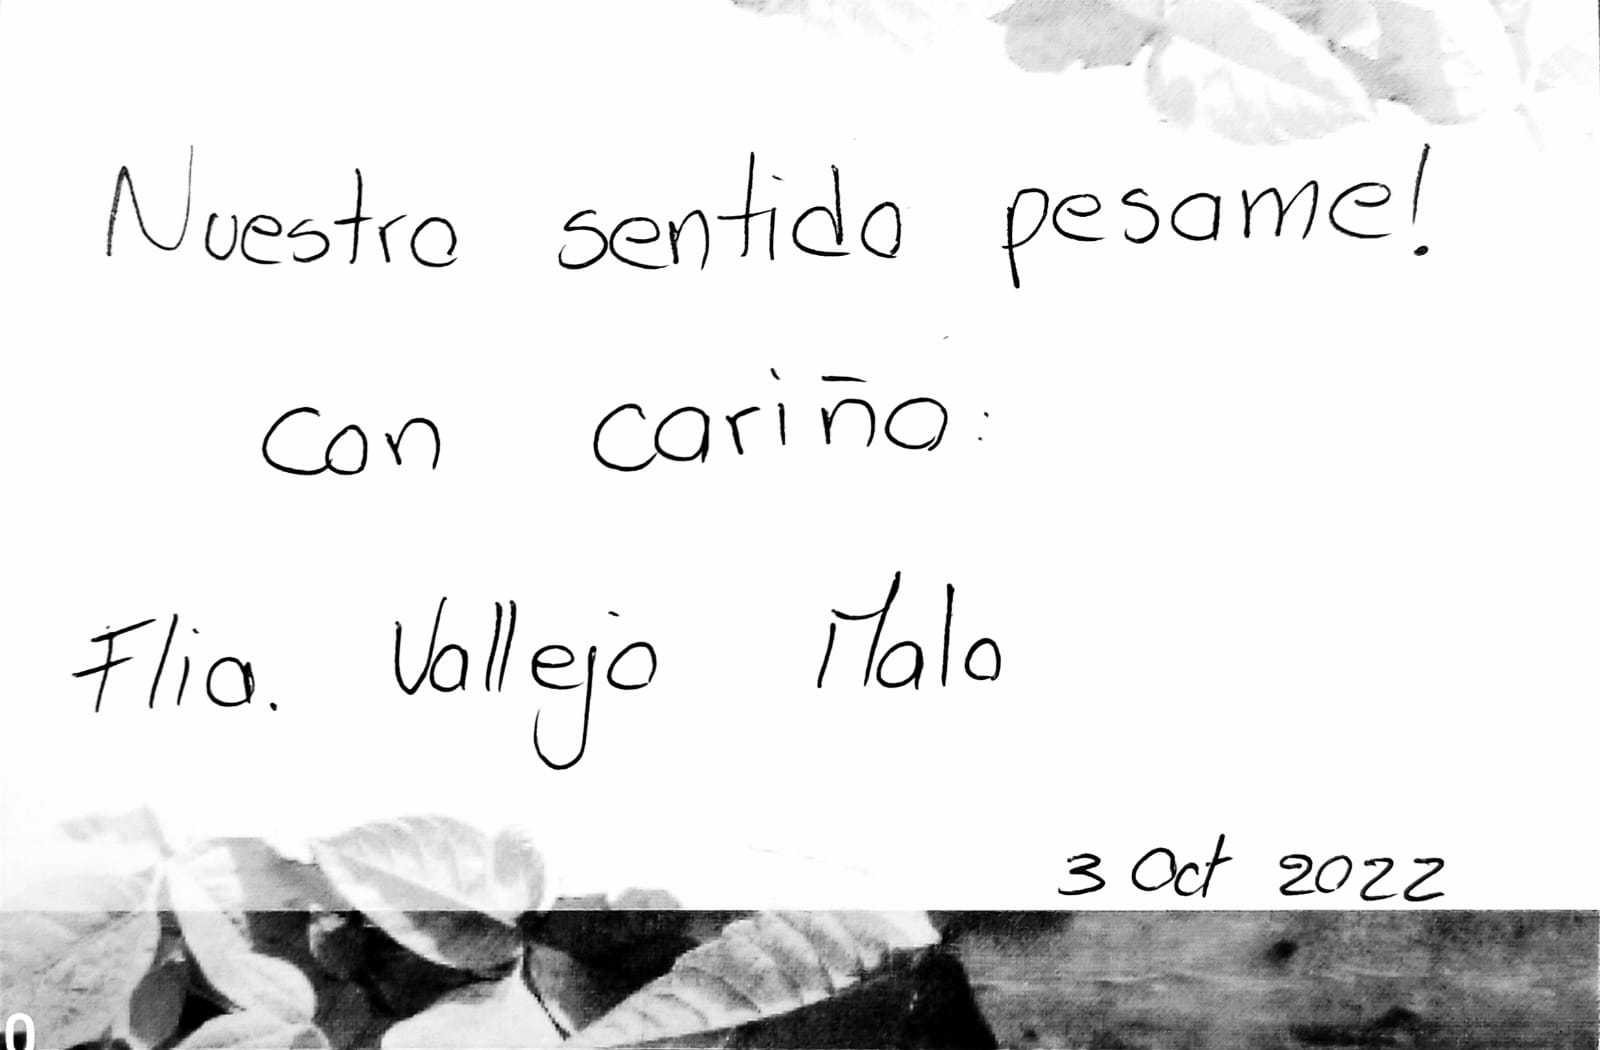 Nuestro sentido pesame!
con cariño:
Flia. Vallejo Malo
3 Oct 2022
0